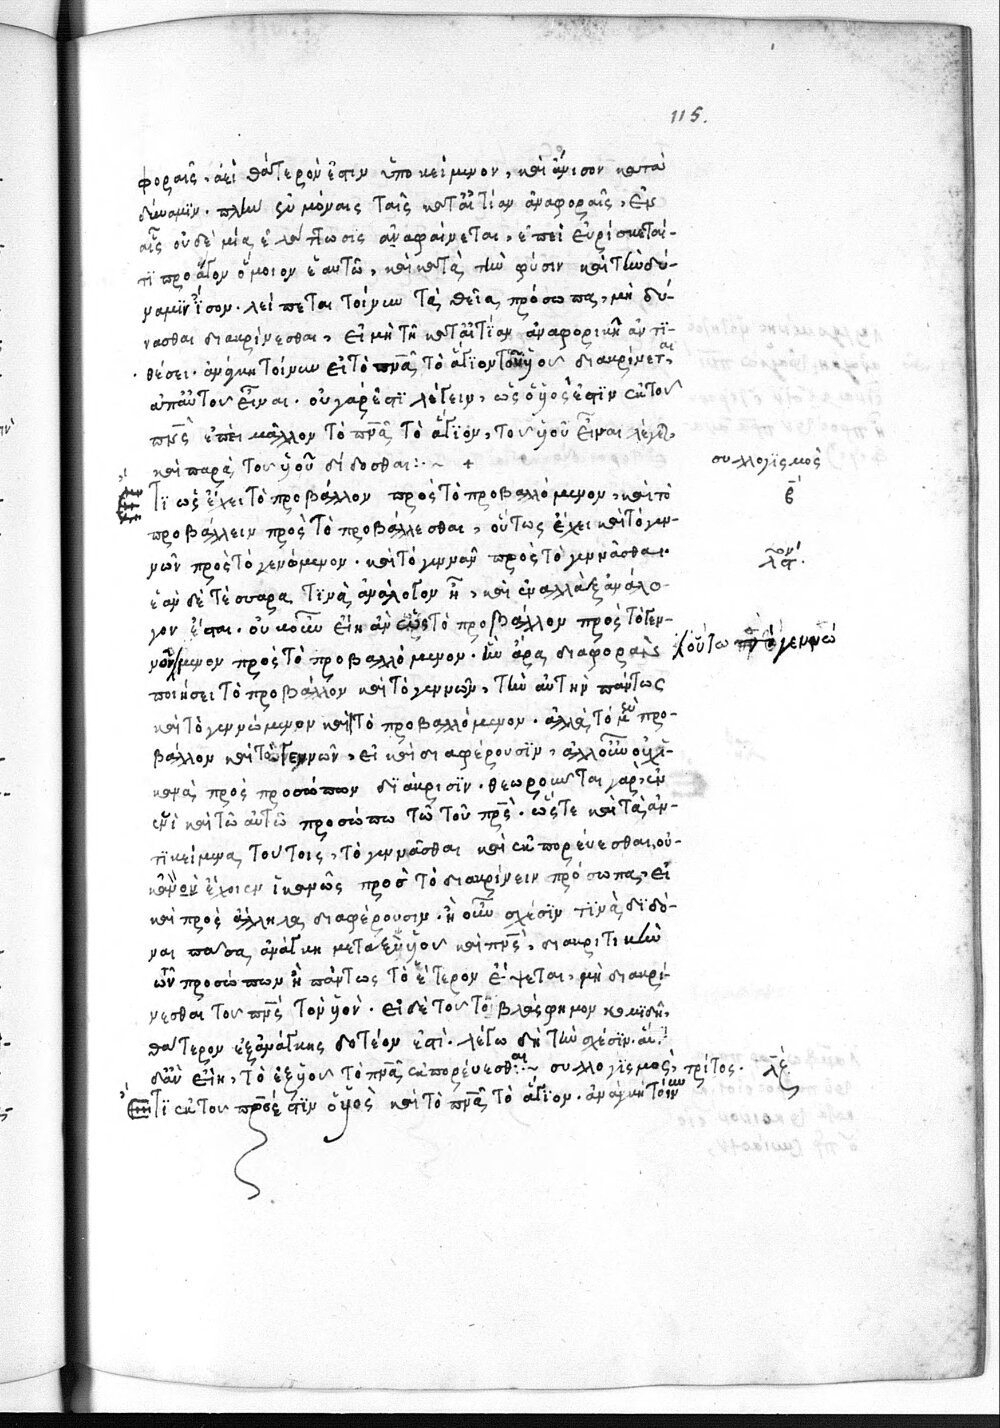 115.
φοραῖς, ἀεὶ θάτερον ἐστὶν ὑποκείμενον, καὶ ἄνισον κατὰ
δύναμϊν. πλὴν ἐν μόναις ταῖς κατ' αἰτίαν ἀναφοραῖς, ἐν
αἷς οὐδὲ μία ἐλάττωσις ἀναφαίνεται, ἐπεὶ εὑρίσκεταί
τι πρὸ αἴτιον ὅμοιον ἑαυτῶ, καὶ κατὰ τὴν φύσιν καὶ τὴν δύ-
ναμϊν ἴσον. λείπεται τοίνυν τὰ θεῖα πρόσωπα, μὴ δύ-
νασθαι διακρίνεσθαι, εἰ μὴ τῆ κατ' αἰτίαν ἀναφορικῆ ἀντι-
θέσει. ἀνάγκη τοίνυν εἰ τὸ πνᾶ τὸ ἅγιον τοῦ ὑιοῦ διακρίνεται,
ἀπ' αὐτοῦ εἶναι. οὐ γάρ ἐστϊ λέγειν, ὡς ὁ υἱὸς ἐστὶν ἐκ τοῦ
πνς ἐπεὶ μᾶλλον τὸ πνᾶ τὸ ἅγιον, τοῦ υἱοῦ εἶναι λέγεται,
καὶ παρὰ τοῦ υἱοῦ δίδοσθαι :~ +
συλλογϊσμὸς
β
Ἔτϊ ὡς ἔχει τὸ προβάλλον πρὸς τὸ προβαλλόμενον, καὶ τὸ
προβάλλειν πρὸς τὸ προβάλλεσθαι, οὕτως ἔχει καὶ τὸ γεν-
νῶν πρὸς τὸ γενώμενον. καὶ τὸ γεννᾶν πρὸς τὸ γεννᾶσθαι.
ἐὰν δὲ τέσσαρα τϊνὰ ἀνάλογον ἦ, καὶ ἐναλλὰξ ἀνάλο-
γον ἔσται. οὐκοῦν εἴη ἂν ὡς τὸ προβάλλον πρὸς τὸ γεν-
νῶν μενον πρὸς τὸ προβαλλόμενον. ἣν ἄρα διαφορὰν
οὕτω γεννώ
ποιήσει τὸ προβάλλον καὶ τὸ γεννῶν, τὴν αὐτὴν πάντως
καὶ τὸ γεννώμενον καὶ τὸ προβαλλόμενον. ἀλλὰ τὸ μὲν προ-
βάλλον καὶ τὸ γεννῶν, εἰ καὶ διαφέρουσϊν, ἀλλ' οὖν οὐχ ἱ-
κανὰ πρὸς προσώπων διάκρισϊν. θεωροῦνται γὰρ ἐν
ἑνὶ καὶ τῶ αὐτῶ προσώπω τῶ τοῦ πρς. ὥστε καὶ τὰ ἀν-
τικείμενα τούτοις, τὸ γεννᾶσθαι καὶ ἐκπορεύεσθαι, οὐ-
κ ἂν ἔχοιεν ἱκανῶς πρὸς τὸ διακρίνειν πρόσωπα, εἰ
καὶ πρὸς ἄλληλα διαφέρουσιν. ἢ οὖν σχέσϊν τϊνὰ διδό-
ναι πᾶσα ἀνάγκη μεταξὺ υἱοῦ καὶ πνς, διακριτικὴν
τῶν προσώπων ἢ πάντως τὸ ἕτερον ἕψεται, μὴ διακρί-
νεσθαι τοῦ πνς τὸν υἱὸν. εἰ δὲ τοῦτο βλάσφημον κομιδῆ,
θάτερον ἐξανάγκης δοτέον ἐστί. λέγω δὴ τὴν σχέσϊν.
δ' ἂν εἴη, τὸ ἐξ υἱοῦ τὸ πνᾶ ἐκπορεύεσθαι :~ συλλογισμὸς τρίτος.
Ἔτϊ ἐκ τοῦ πρς ἐστϊν ὁ υἱὸς καὶ τὸ πνᾶ τὸ ἅγϊον. ἀνάγκη τοίνυν